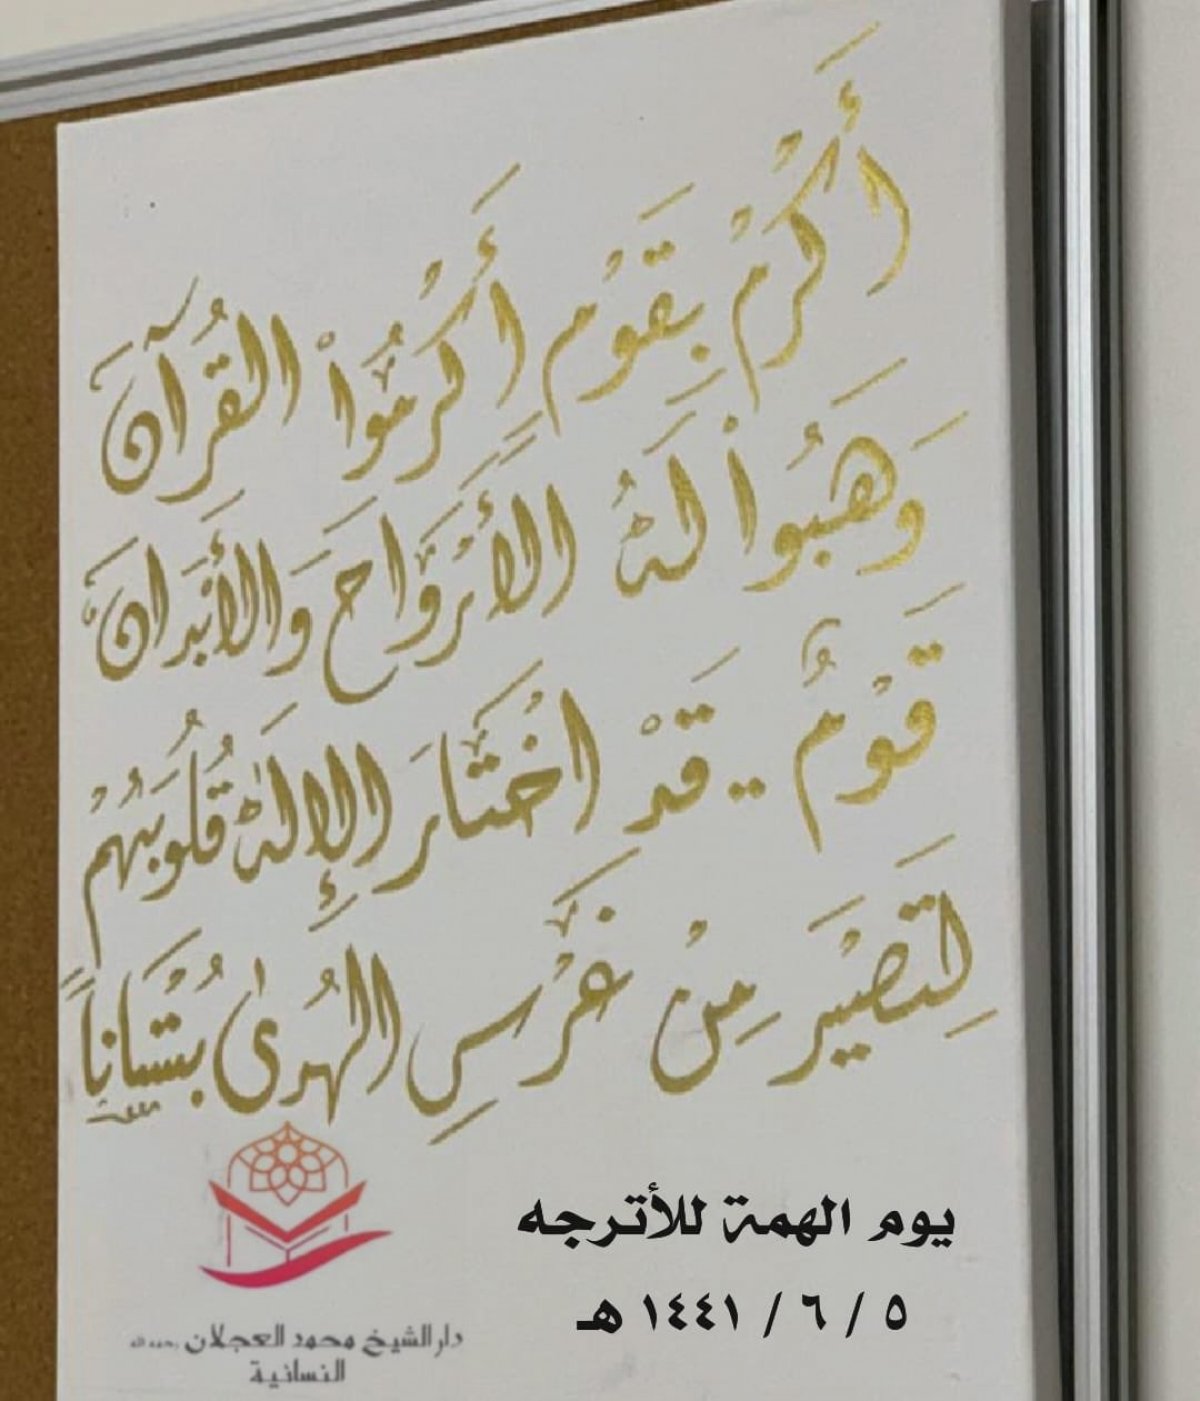 أَكْرِمْ بِقَوْمٍ أَكْرَمُواْ القُرْآنَ
وَهَبُواْ لَهُ الأَرْوَاحَ وَالأَبْدَانَ
قَوْمٌ .. قَدْ اخْتَارَ الإِلَهُ قُلُوبَهُمْ
لِتَصِيرَ مِنْ غَرْسِ الهُدىٰ بُسْتَاناً
يوم الهمة للأترجه
٥ / ٦ / ١٤٤١ هـ
دار الشيخ محمد العجلان رحمه الله
النسائية